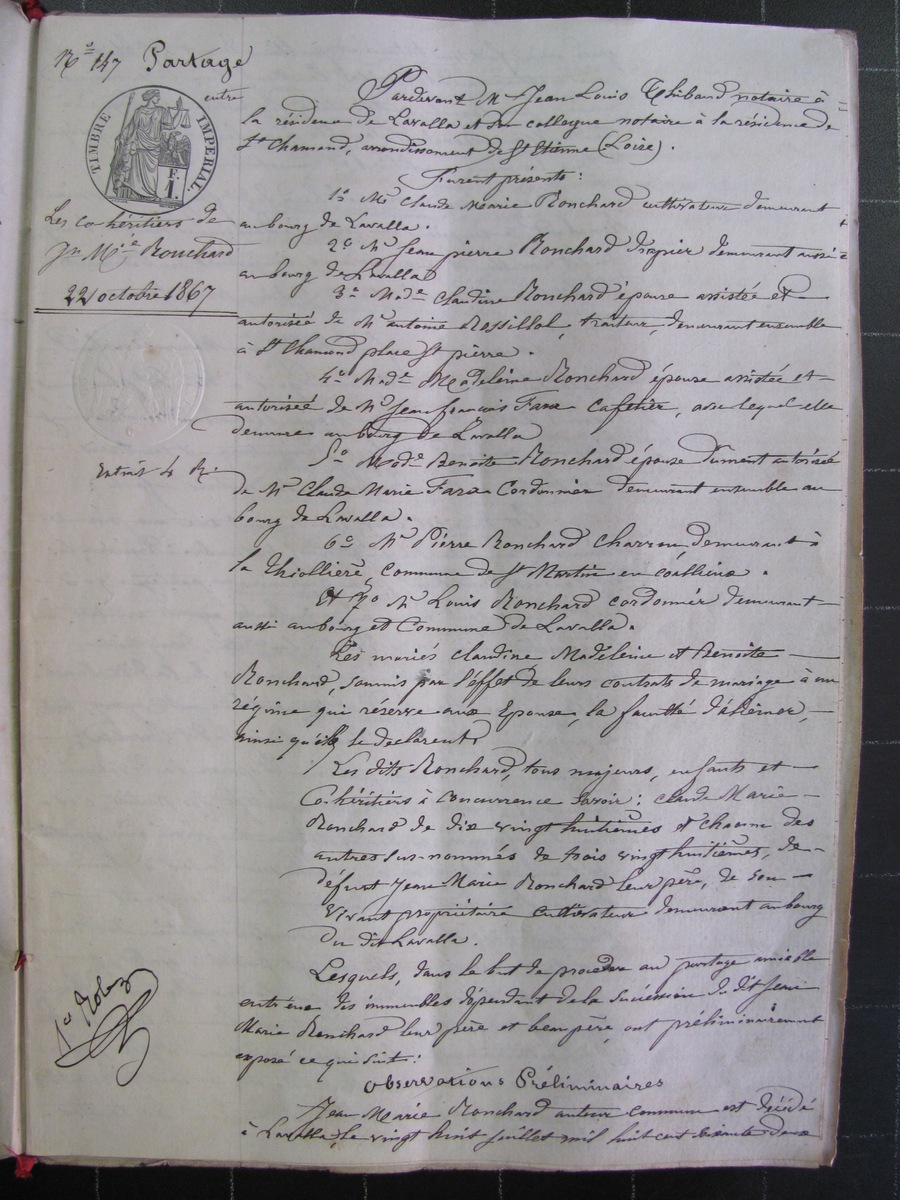 No 147 Partage
entre
TIMBRE IMPERIAL.
F.
1.
Les co-héritiers de
Jn Mie Ronchard
22 octobre 1867
Extrait 4 R.
Pardevant Me Jean Louis Thibaud notaire à
la résidence de Lavalla et son collègue notaire à la résidence de
St Chamond, arrondissement de St Etienne (Loire).
Furent présents:
1o Mr Claude Marie Ronchard cultivateur demeurant
au bourg de Lavalla.
2o Mr Jean pierre Ronchard drapier demeurant aussi
au bourg de Lavalla
3o Made Claudine Ronchard épouse assistée et
autorisée de Mr antoine Rossillol, traiteur, demeurant ensemble
à St Chamond place St pierre.
4o Made Madeleine Ronchard épouse assistée et
autorisée de Mr Jean françois Fara Cafetier, avec lequel elle
demeure au bourg de Lavalla
5o Made Benoite Ronchard épouse dument autorisée
de Mr Claude Marie Fara Cordonnier demeurant ensemble au
bourg de Lavalla.
6o Mr Pierre Ronchard Charron, demeurant à
la Thiollière, Commune de St Martin en coallieux.
Et 7o Mr Louis Ronchard cordonnier demeurant
aussi au bourg et Commune de Lavalla.
Les mariés Claudine, Madeleine et Benoite
Ronchard, soumis par l'effet de leurs contrats de mariage à un
régime qui réserve aux Epouse, la faculté d'aliéner,
ainsi qu'ils le declarent
Les dits Ronchard, tous majeurs, enfants et
Cohéritiers à Concurrence savoir: Claude Marie
Ronchard de dix vingt huitièmes et chacun des
autres sus-nommés de trois vingt huitièmes, de
défunt Jean Marie Ronchard leur père, de son
vivant propriétaire cultivateur demeurant au bourg
du dit Lavalla.
Lesquels, dans le but de procéder au partage amiable
entr'eux des immeubles dépendant de la succession du dit Jean
Marie Ronchard leur père et beau père, ont préliminairement
exposé ce qui suit:
Observations Préliminaires
Jean Marie Ronchard auteur commun est décédé
à Lavalla, le vingt huit juillet mil huit cent soixante deux
1er Role